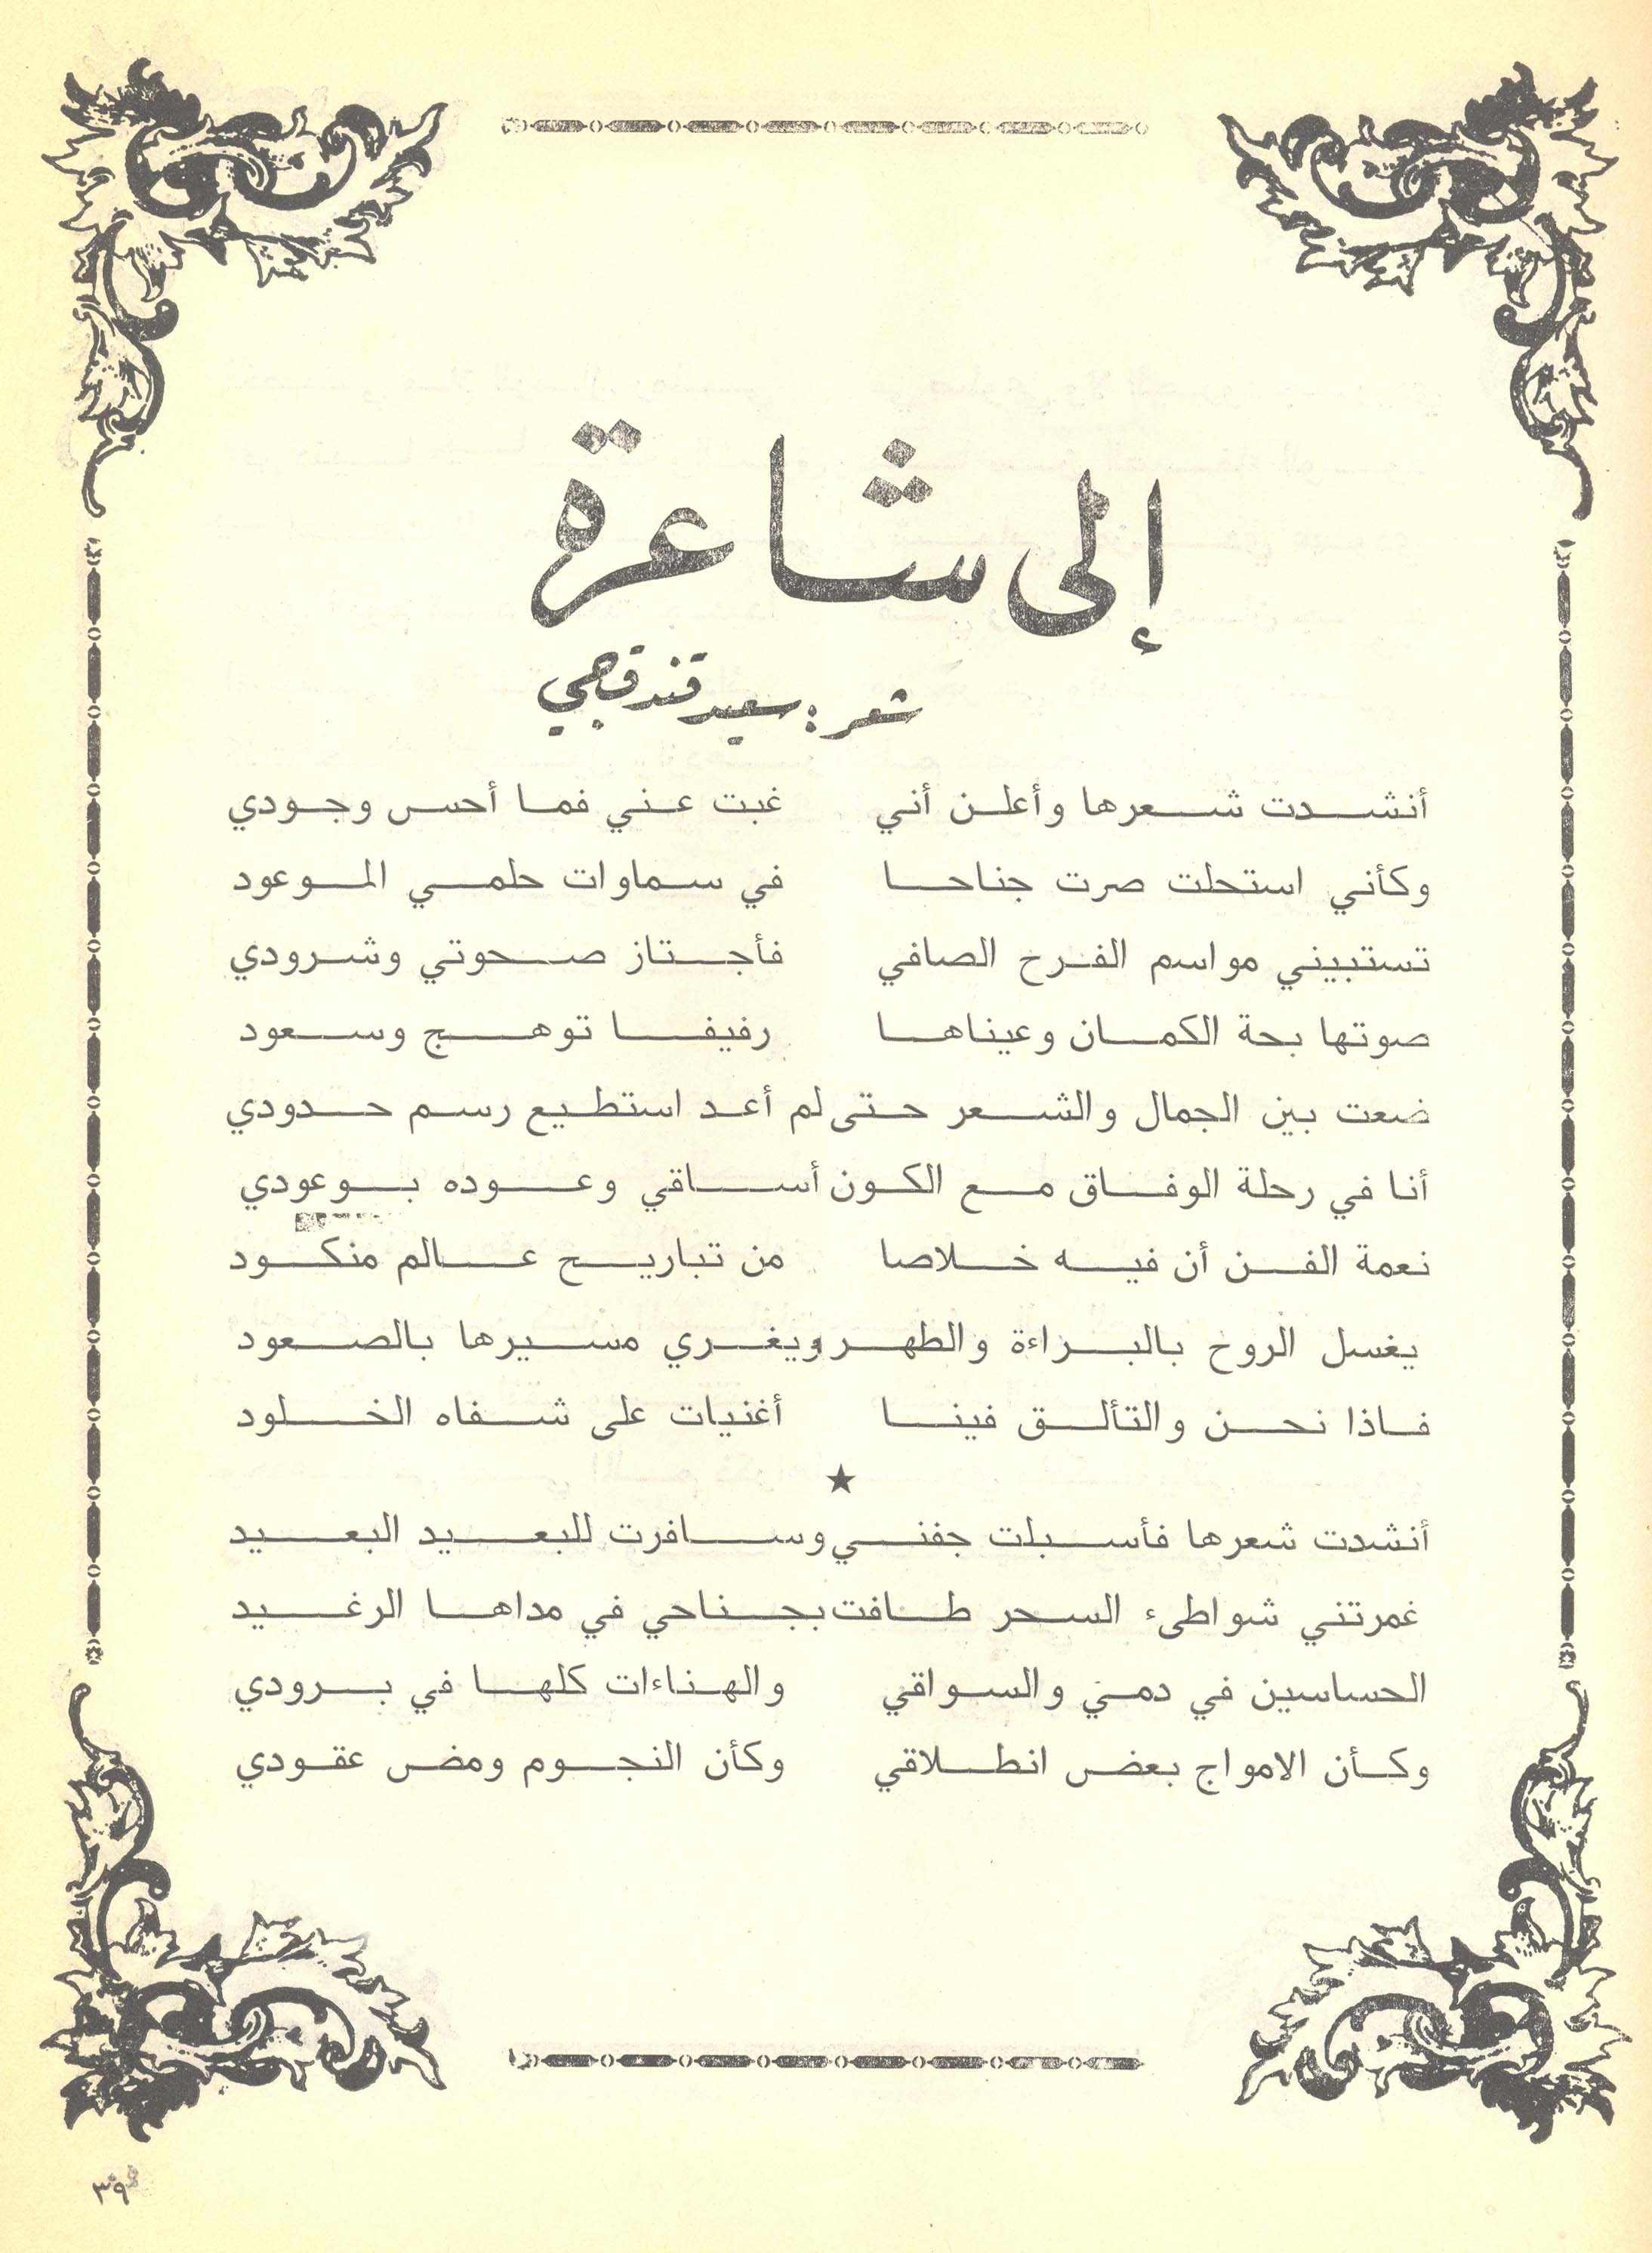 إلى شاعرة
شعر: سعيد قندقجي
أنشدت شعرها وأعلن أني غبت عني فما أحس وجودي
وكأني استحلت صرت جناحا في سماوات حلمي الموعود
تستبيني مواسم الفرح الصافي فأجتاز صحوتي وشرودي
صوتها بحة الكمان وعيناها رفيفا توهج وسعود
ضعت بين الجمال والشعر حتى لم أعد استطيع رسم حدودي
أنا في رحلة الوفاق مع الكون أساقي وعوده بوعودي
نعمة الفن أن فيه خلاصا من تباريح عالم منكود
يغسل الروح بالبراءة والطهر ويغري مسيرها بالصعود
فاذا نحن والتألق فينا أغنيات على شفاه الخلود
★
أنشدت شعرها فأسبلت جفني وسافرت للبعيد البعيد
غمرتني شواطىء السحر طافت بجناحي في مداها الرغيد
الحساسين في دمي والسواقي والهناءات كلها في برودي
وكأن الامواج بعض انطلاقي وكأن النجوم ومض عقودي
٣٩